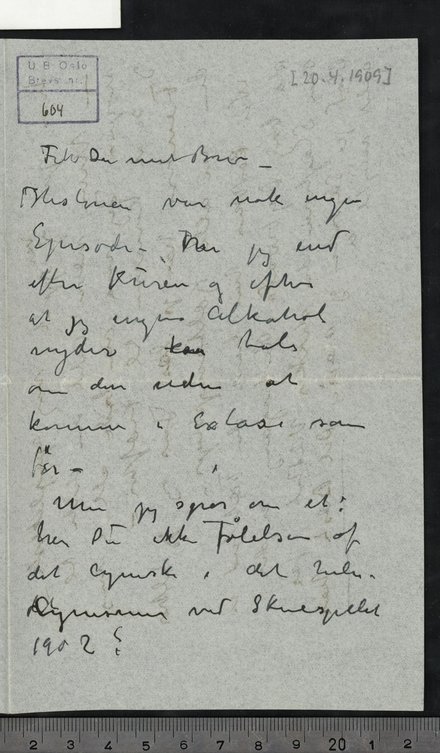 U B Oslo
Brevs. nr.
604
[20.4.1909]
Fik Du mit Brev –
Historien var nok ingen
Episode – Kan jeg end
efter Kuren og efter
at jeg ingen Alkohol
nyder kan tale
om den uden at
komme i Extase som
før –
Men jeg spør om et:
har Du ikke Følelsen af
det cyniske i det hele –
Cynismen ved Skuespillet
1902?
2 3 4 5 6 7 8 9 20 1 2